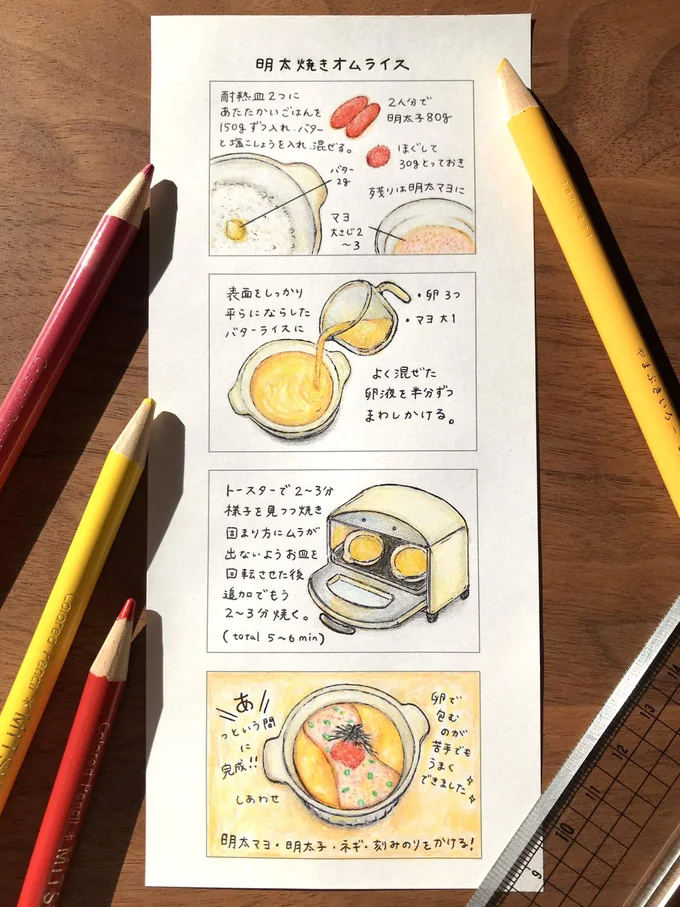 明太焼きオムライス
耐熱皿2つに
あたたかいごはんを
150gずつ入れ、バター
と塩こしょうを入れ混ぜる。
2人分で
明太子80g
ほぐして
30gとっておき
残りは明太マヨに
バター
2g
マヨ
大さじ2
〜3
表面をしっかり
平らにならした
バターライスに
・卵 3つ
・マヨ 大1
よく混ぜた
卵液を半分ずつ
まわしかける。
トースターで2〜3分
様子を見つつ焼き
固まり方にムラが
出ないようお皿を
回転させた後
追加でもう
2〜3分焼く。
(total 5〜6min)
あ
っという間
に
完成!!
しあわせ
卵で
包む
のが
苦手でも
うまく
できました
明太マヨ・明太子・ネギ・刻みのりをかける!
やまぶきいろ
Colored Pencil * MITS
Colored Pencil * MITS
14
13
12
11
10
9